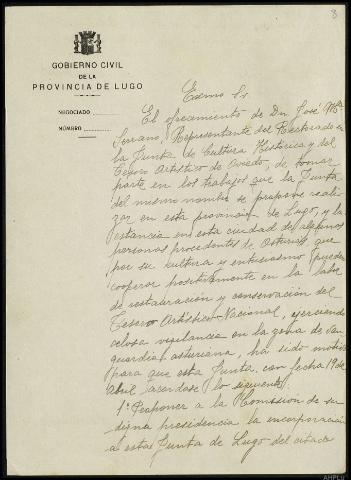 8
GOBIERNO CIVIL
DE LA
PROVINCIA DE LUGO
NEGOCIADO
NÚMERO
Excmo Sr
El ofrecimiento de Dn José Mª
Serrano, Representante del Rectorado en
la Junta de Cultura Histórica y del
Tesoro Artístico de Oviedo, de tomar
parte en los trabajos que la Junta
del mismo nombre se propone reali-
zar en esta provincia de Lugo, y la
estancia en esta ciudad de algunas
personas procedentes de Asturias que
por su cultura y entusiasmo pueden
cooperar positivamente en la labor
de restauración y conservación del
Tesoro Artístico Nacional, ejerciendo
celosa vigilancia en la zona de van
guardia asturiana, ha sido motivo
para que esta Junta, con fecha 19 de
Abril, acordase lo siguiente:
1º Proponer a la Comisión de su
digna presidencia la incorporación
a esta Junta de Lugo del
AHPLU